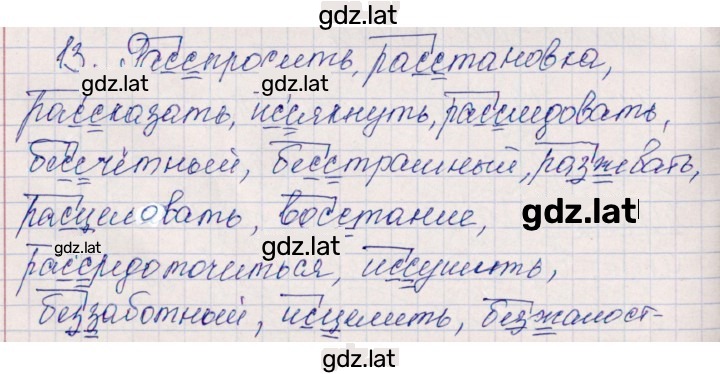 gdz.lat
13. Расспросить, расстановка,
gdz.lat gdz.lat
рассказать, иссякнуть, расследовать,
бессчётный, бесстрашный, разжевать,
расцеловать, восстание, gdz.lat
gdz.lat gdz.lat
рассредоточиться, иссушить,
беззаботный, исцелить, безжалост-
gdz.lat